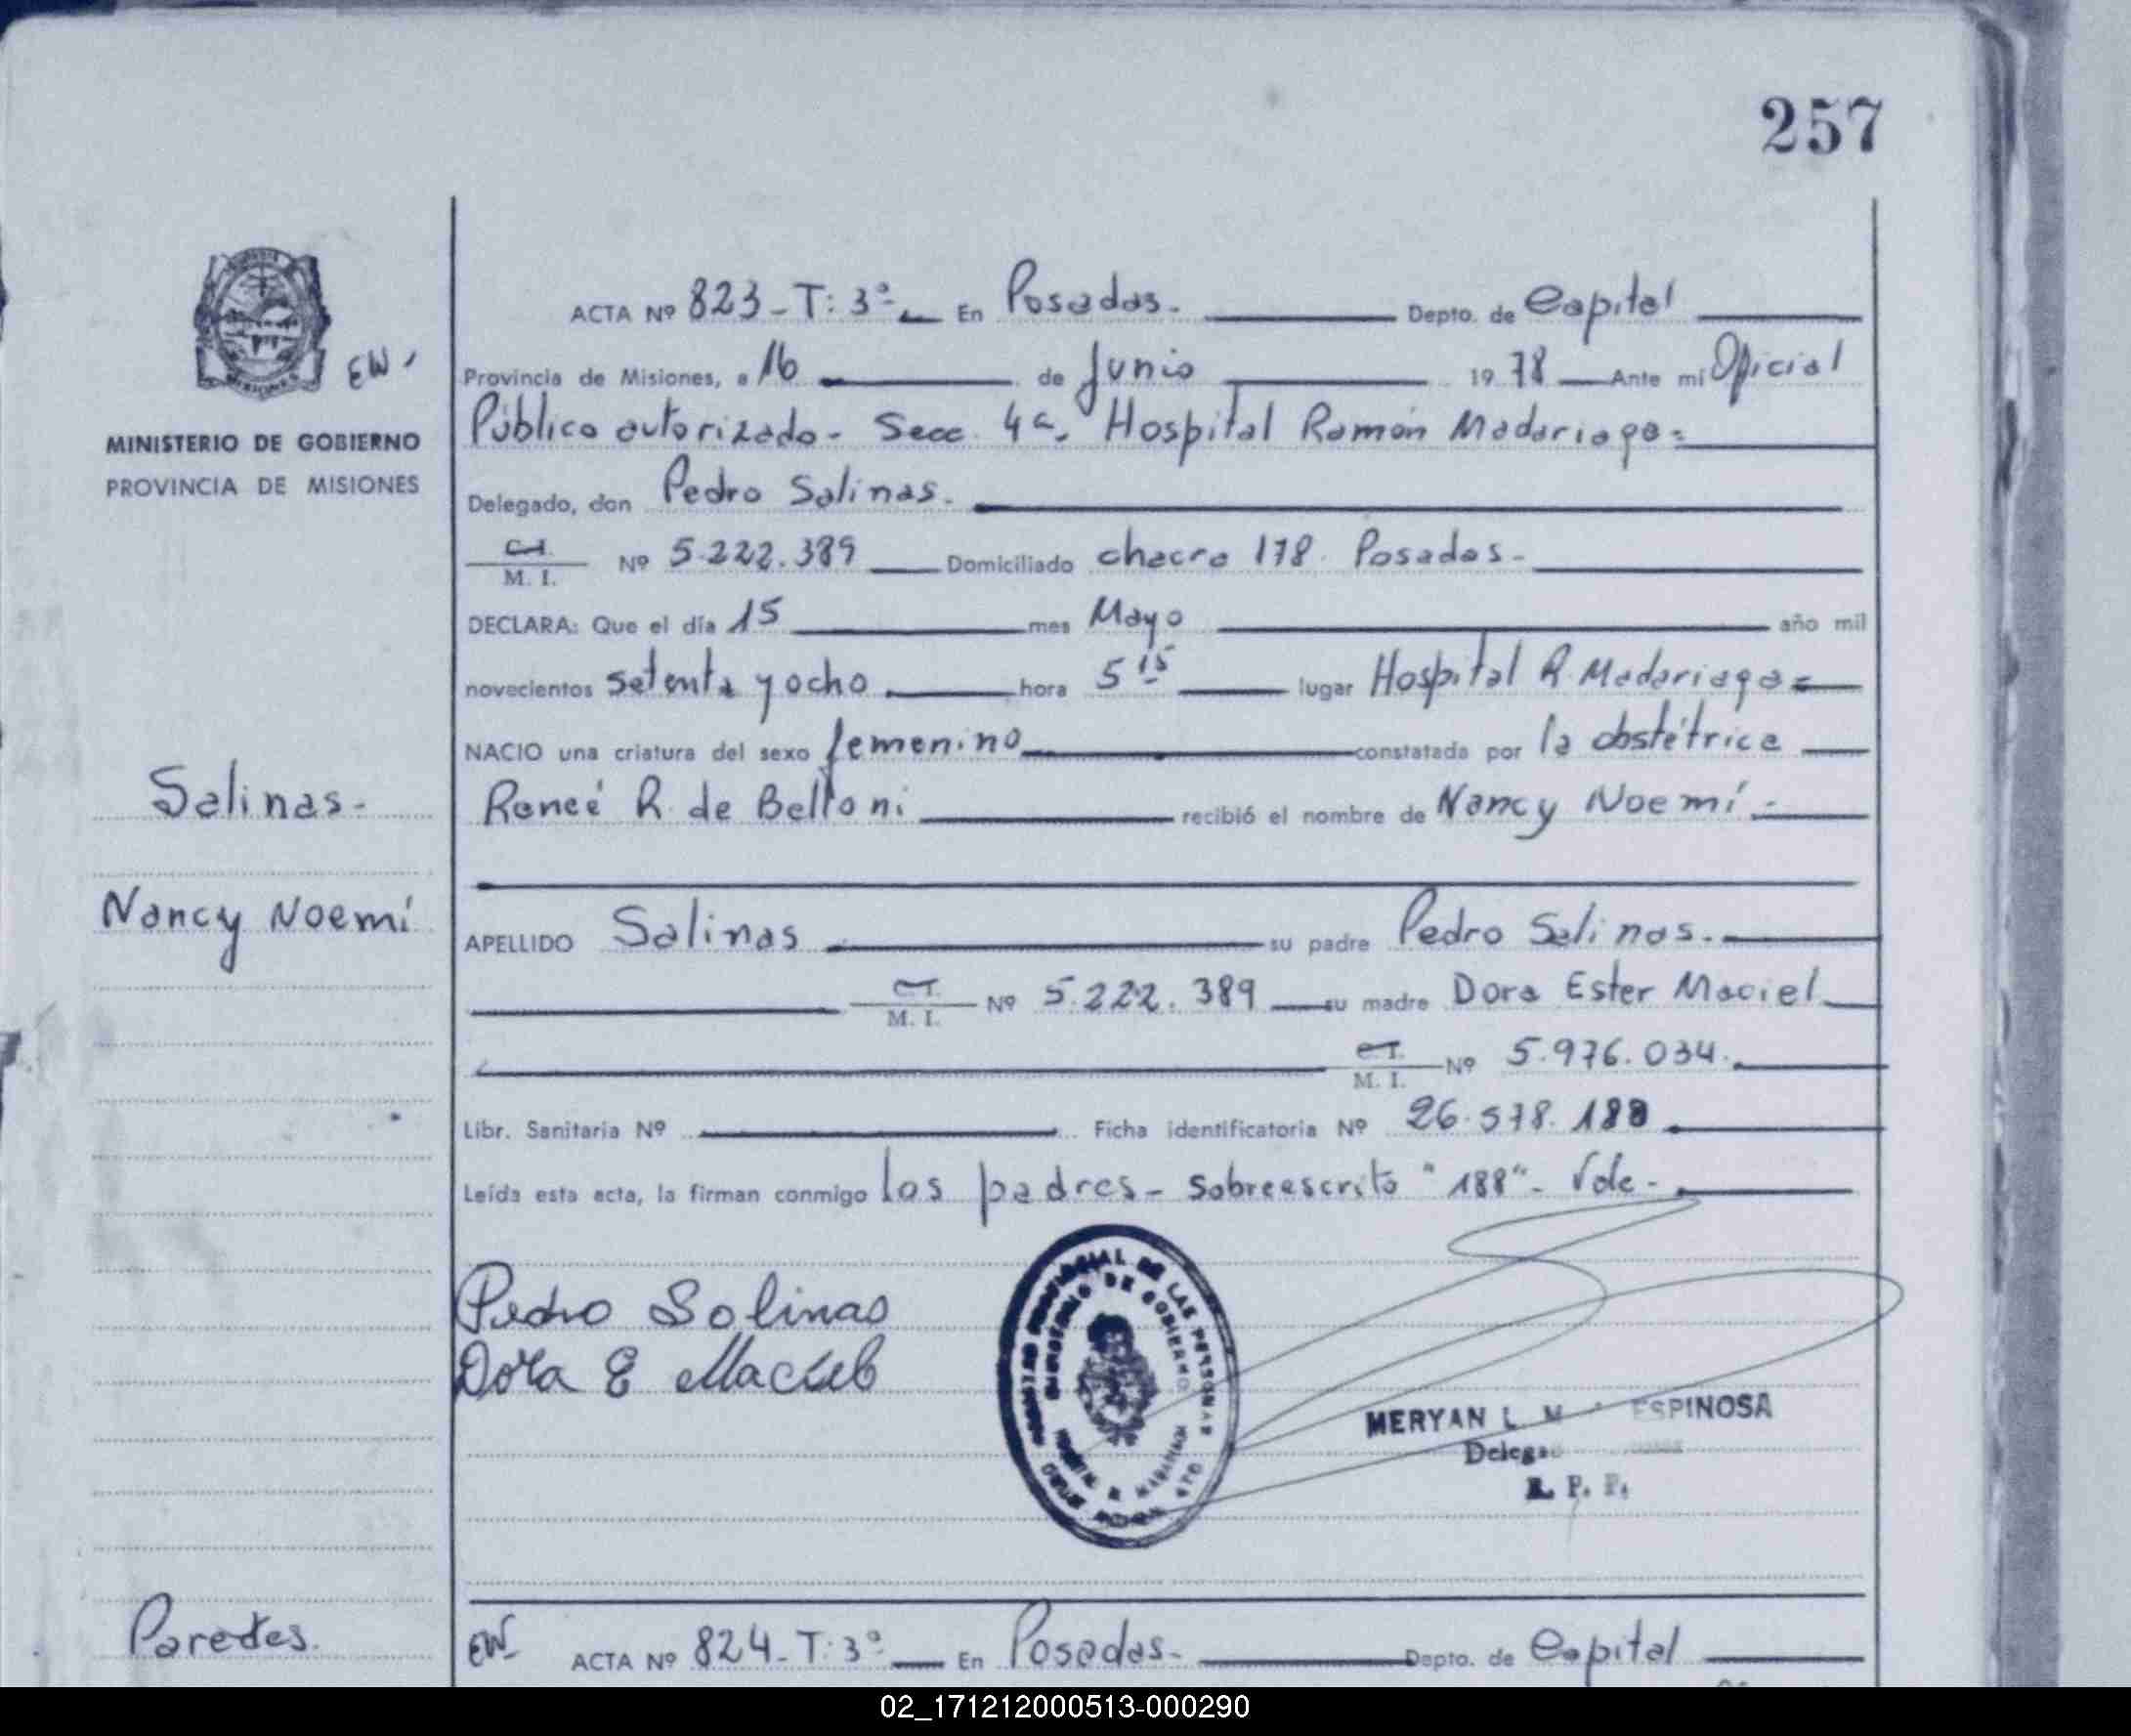 257
ACTA Nº 823 - T: 3º - En Posadas. Depto. de Capital
EW.
Provincia de Misiones, a 16 de Junio 1978 Ante mi Oficial
MINISTERIO DE GOBIERNO
PROVINCIA DE MISIONES
Público autorizado - Secc 4ª. Hospital Ramón Madariaga =
Delegado, don Pedro Salinas.
C.I.
M. I. Nº 5.222.389 Domiciliado chacra 178. Posadas -
DECLARA: Que el día 15 mes Mayo año mil
novecientos setenta y ocho hora 5 15 lugar Hospital R. Madariaga =
NACIO una criatura del sexo femenino constatada por la obstétrice
Reneé R. de Belloni recibió el nombre de Nancy Noemí -
Salinas -
Nancy Noemí
APELLIDO Salinas su padre Pedro Salinas.
C.I.
M. I. Nº 5.222.389 su madre Dora Ester Maciel
C.I.
M. I. Nº 5.976.034.
Libr. Sanitaria Nº Ficha identificatoria Nº 26.578.188
Leída esta acta, la firman conmigo los padres - Sobreescrito "188" - Vale -
Pedro Salinas
Dora E Maciel
PROVINCIAL DE LAS PERSONAS
MINISTERIO DE GOBIERNO
MERYAN L. M ESPINOSA
R. P. P.
Paredes.
EW- ACTA Nº 824 - T: 3º - En Posadas - Depto. de Capital
02_171212000513-000290